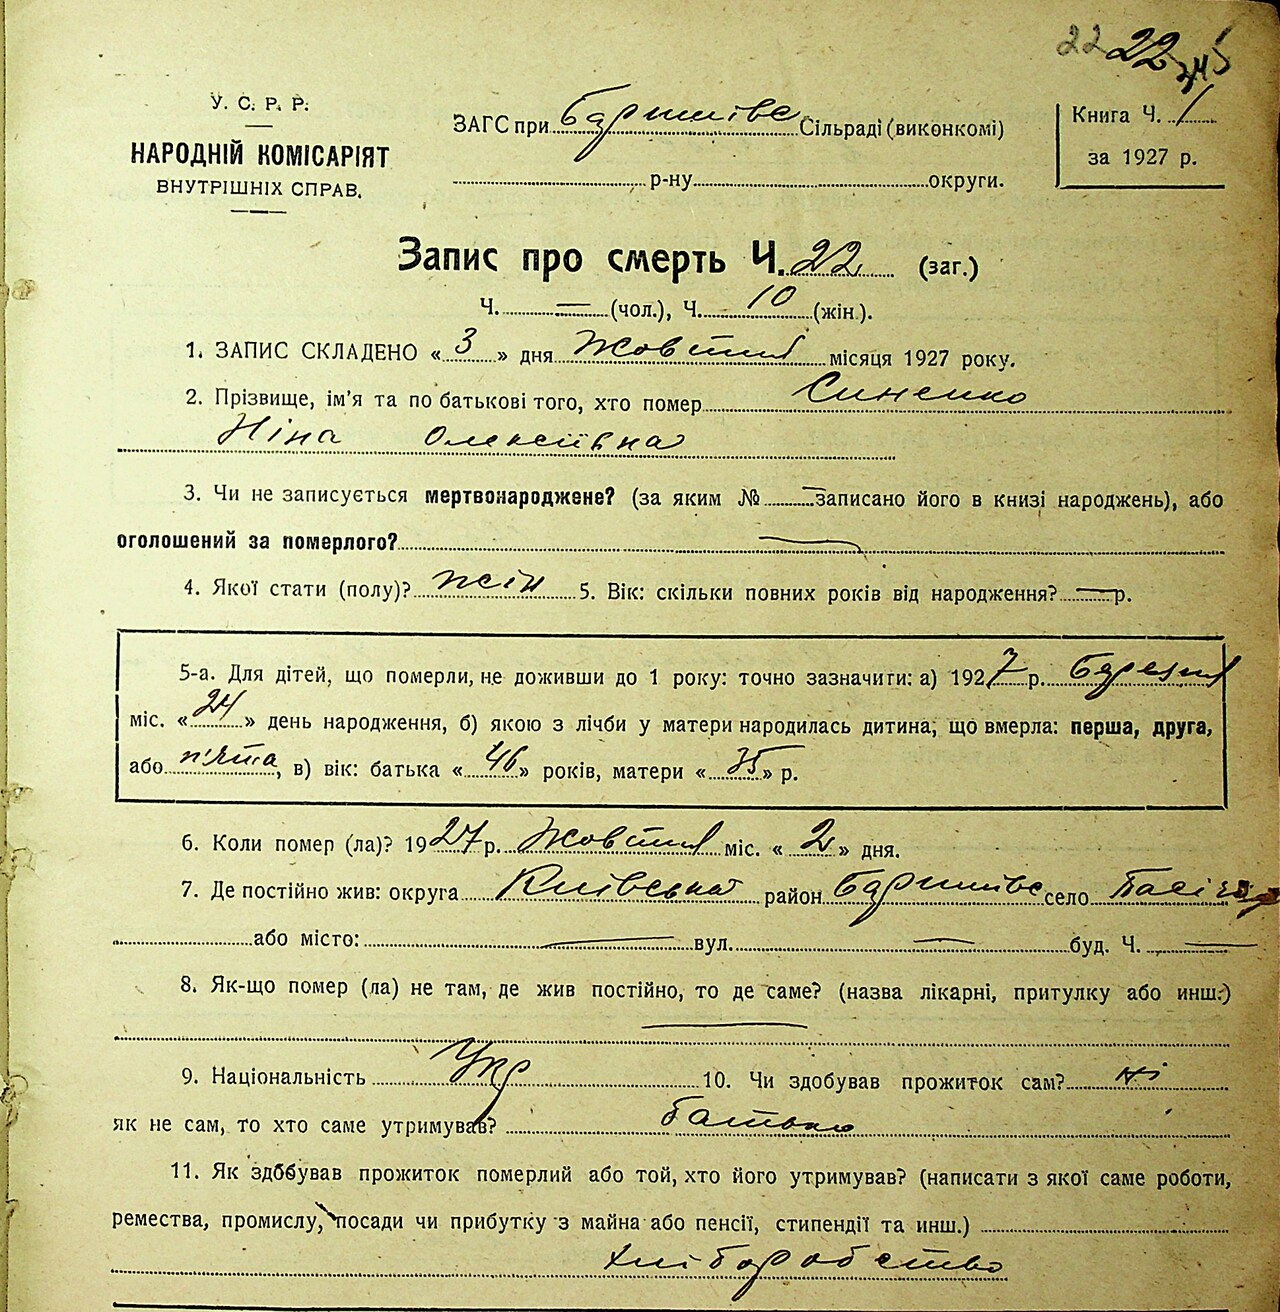 22 22
У. С. Р. Р.
НАРОДНІЙ КОМІСАРІЯТ
ВНУТРІШНІХ СПРАВ.
ЗАГС при Баришівс Сільраді (виконкомі)
р-ну округи.
Книга Ч. 1
за 1927 р.
Запис про смерть Ч. 22 (заг.)
Ч. = (чол.), Ч. 10 (жін.).
1. ЗАПИС СКЛАДЕНО « 3 » дня Жовтня місяця 1927 року.
2. Прізвище, ім'я та по батькові того, хто помер Синенко
Ніна Олексіївна
3. Чи не записується мертвонароджене? (за яким № — записано його в книзі народжень), або
оголошений за померлого? —
4. Якої стати (полу)? жін 5. Вік: скільки повних років від народження? — р.
5-а. Для дітей, що померли, не доживши до 1 року: точно зазначити: а) 1927 р. Березня
міс. « 24 » день народження, б) якою з лічби у матери народилась дитина, що вмерла: перша, друга,
або п'ята, в) вік: батька « 46 » років, матери « 35 » р.
6. Коли помер (ла)? 1927 р. Жовтня міс. « 2 » дня.
7. Де постійно жив: округа Київської район Баришівс село
або місто: — вул. — буд. Ч. —
8. Як-що помер (ла) не там, де жив постійно, то де саме? (назва лікарні, притулку або инш.)
—
9. Національність Укр 10. Чи здобував прожиток сам? ні
як не сам, то хто саме утримував? батько
11. Як здобував прожиток померлий або той, хто його утримував? (написати з якої саме роботи,
ремества, промислу, посади чи прибутку з майна або пенсії, стипендії та инш.)
хліборобство